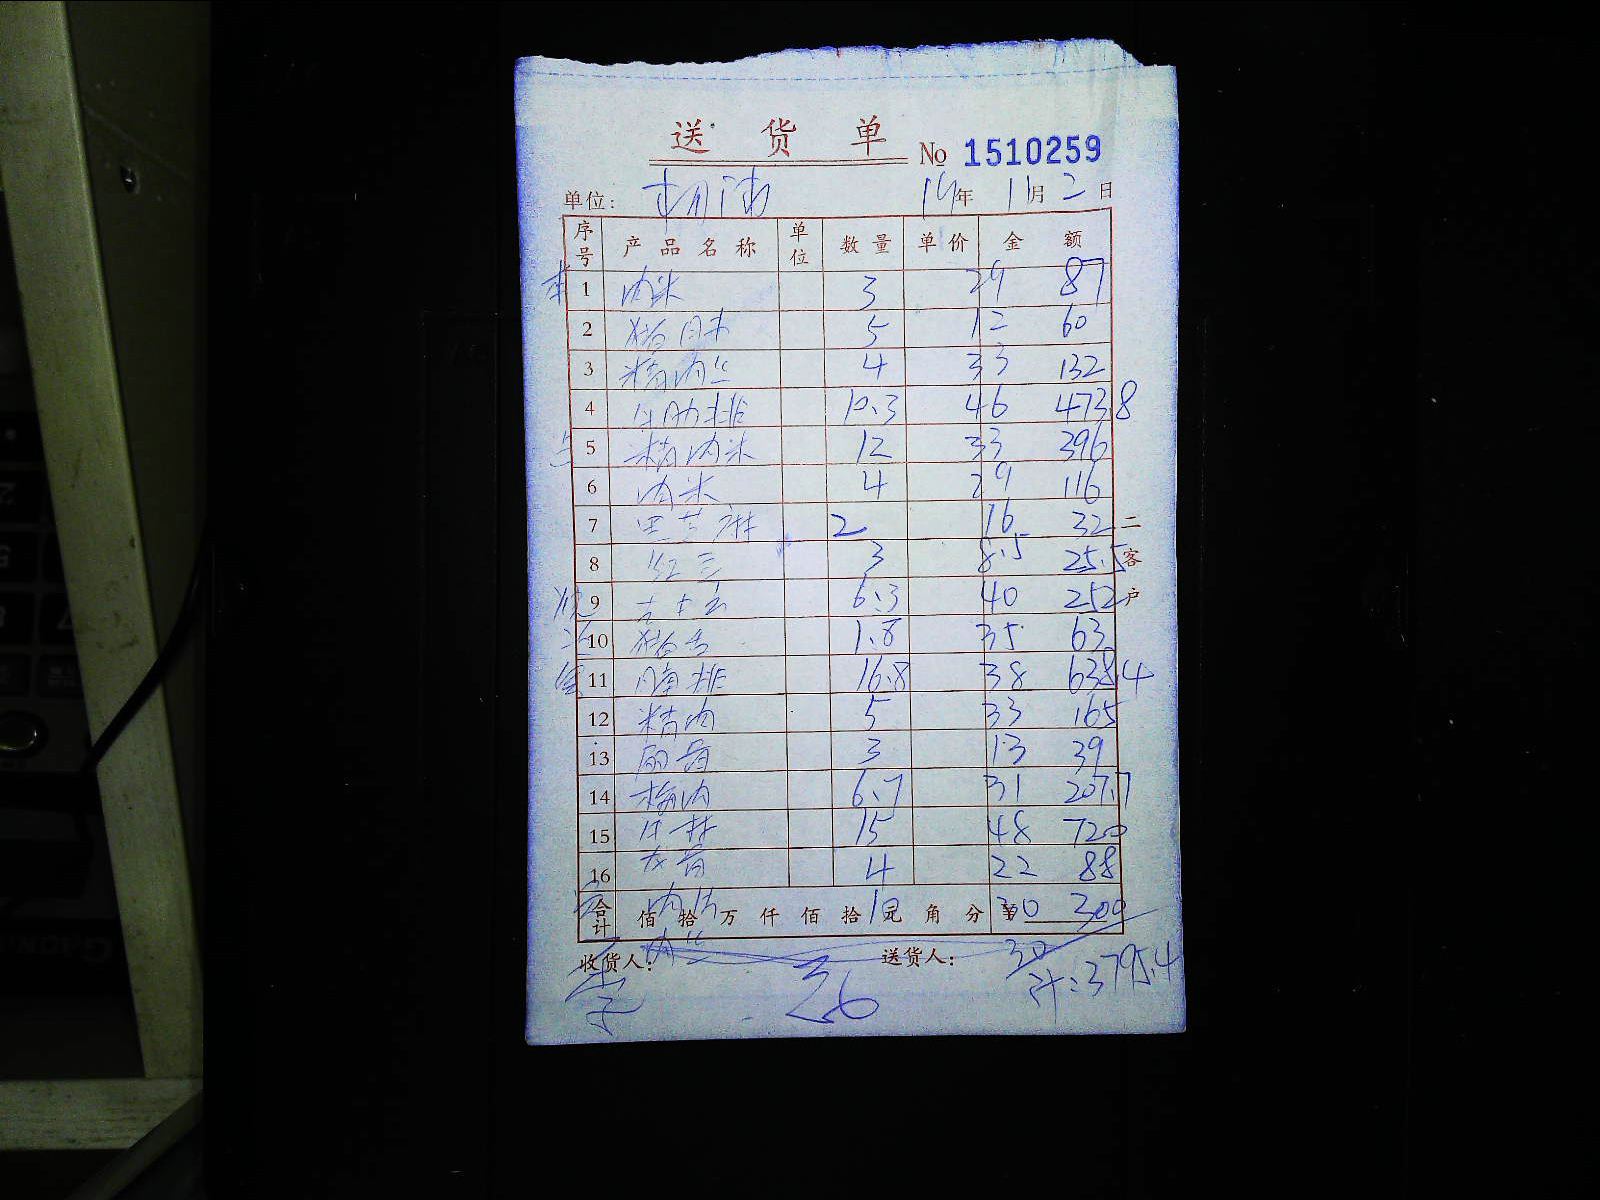 送货单 No 1510259
单位： 14年 11月 2日
序号 产品名称 单位 数量 单价 金额
1 肉米 3 29 87
2 5 12 60
3 精肉丝 4 33 132
4 牛肋排 10.3 46 473.8
5 精肉米 12 33 396
6 肉米 4 29 116
7 2 16 32
8 3 8.5 25.5
9 6.3 40 252
10 猪舌 1.8 35 63
11 腩排 16.8 38 638.4
12 精肉 5 33 165
13 3 13 39
14 梅肉 6.7 31 207.7
15 15 48 720
16 龙骨 4 22 88
合计 佰拾万仟佰拾元角分 ¥ 10 30 300
收货人： 送货人： 30
计：3795.4
二客户